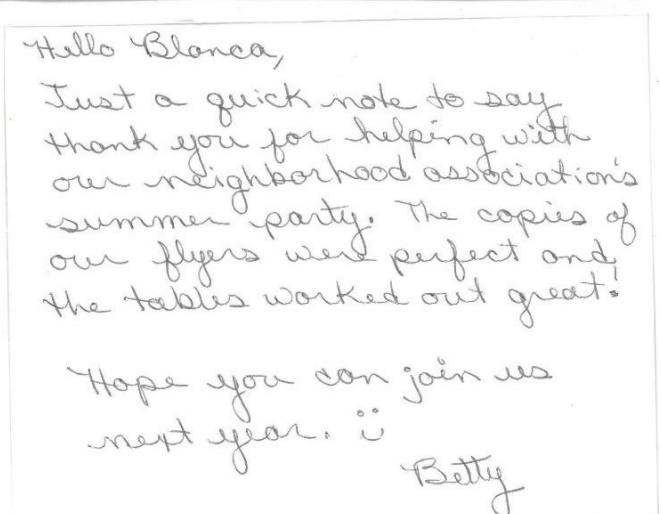 Hello Blanca,
Just a quick note to say
thank you for helping with
our neighborhood association's
summer party. The copies of
our flyers were perfect and
the tables worked out great!
Hope you can join us
next year. ü
Betty